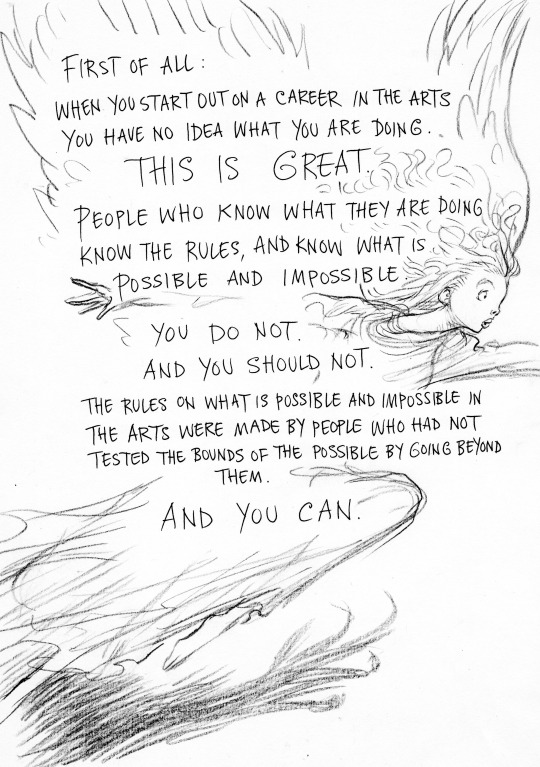 FIRST OF ALL:
WHEN YOU START OUT ON A CAREER IN THE ARTS
YOU HAVE NO IDEA WHAT YOU ARE DOING.
THIS IS GREAT.
PEOPLE WHO KNOW WHAT THEY ARE DOING
KNOW THE RULES, AND KNOW WHAT IS
POSSIBLE AND IMPOSSIBLE
YOU DO NOT.
AND YOU SHOULD NOT.
THE RULES ON WHAT IS POSSIBLE AND IMPOSSIBLE IN
THE ARTS WERE MADE BY PEOPLE WHO HAD NOT
TESTED THE BOUNDS OF THE POSSIBLE BY GOING BEYOND
THEM.
AND YOU CAN.